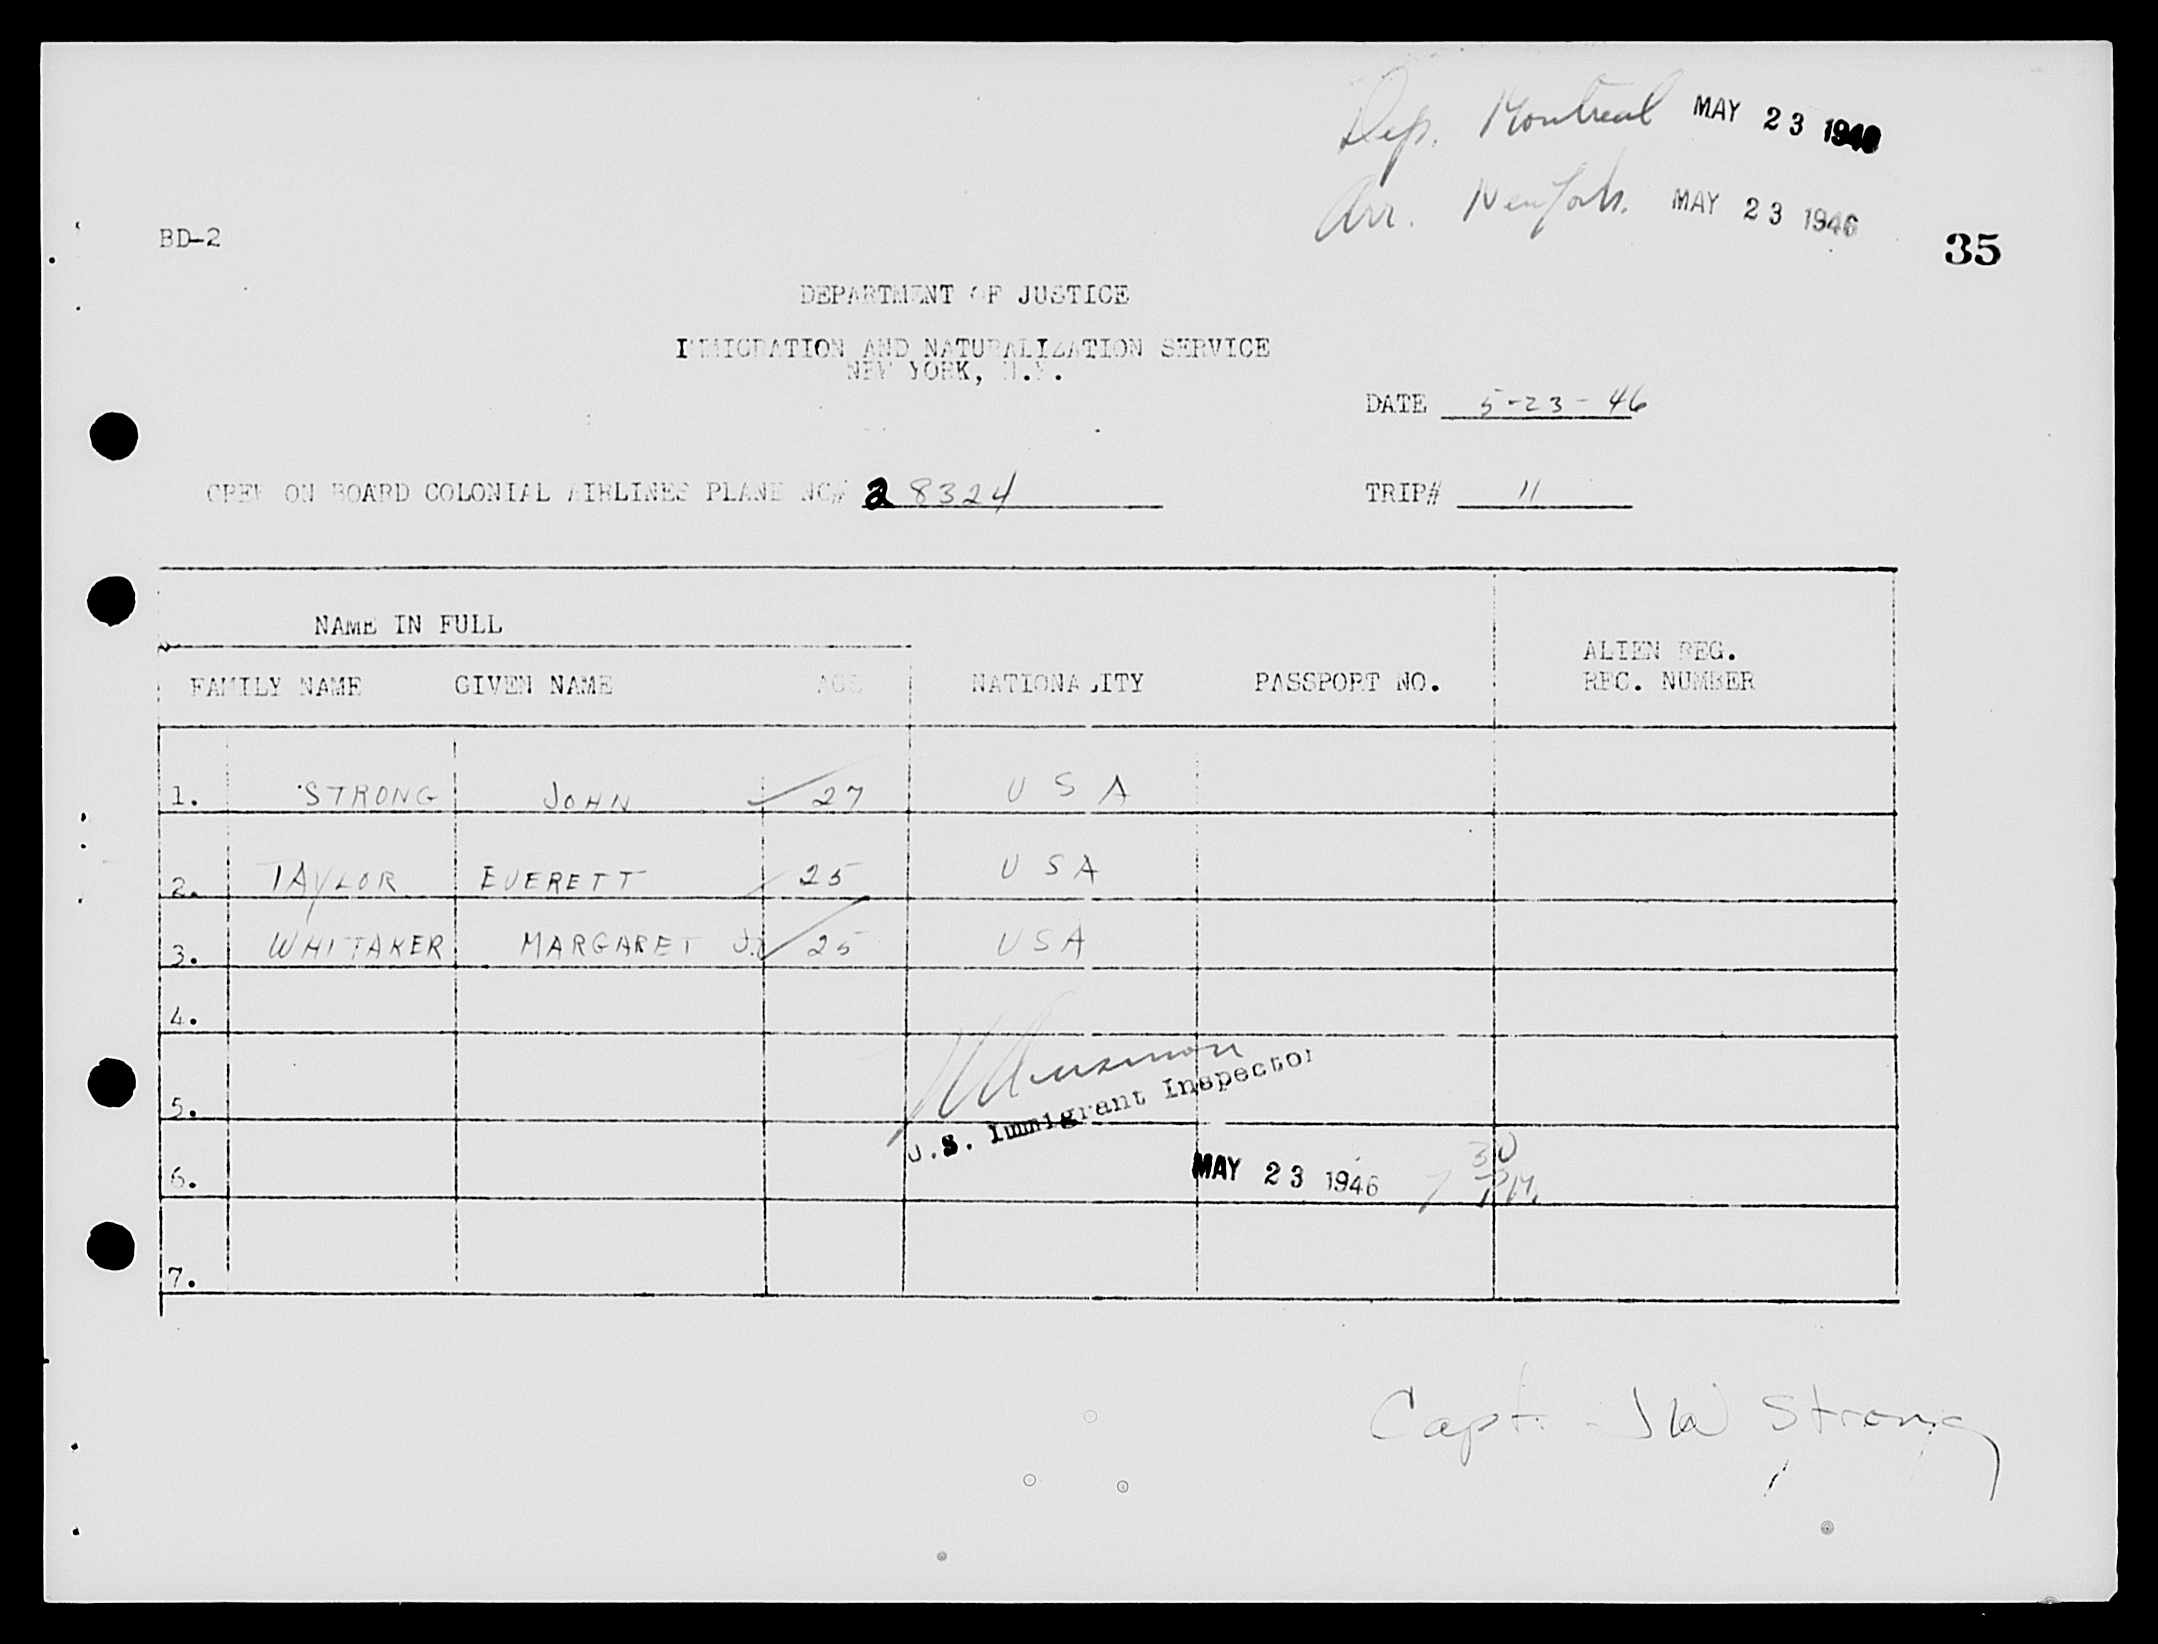 Dep. Montreal MAY 23 1946
Arr. New York. MAY 23 1946
BD-2
35
DEPARTMENT OF JUSTICE
IMMIGRATION AND NATURALIZATION SERVICE
NEW YORK, N.Y.
DATE 5-23-46
CREW ON BOARD COLONIAL AIRLINES PLANE NO# 28324
TRIP# 11
NAME IN FULL
FAMILY NAME GIVEN NAME AGE NATIONALITY PASSPORT NO. ALIEN REG. REC. NUMBER
1. STRONG JOHN 27 USA
2. TAYLOR EVERETT 25 USA
3. WHITAKER MARGARET J. 25 USA
4.
5.
U.S. Immigrant Inspector
6. MAY 23 1946 7 30 PM.
7.
Capt. - JW Strong